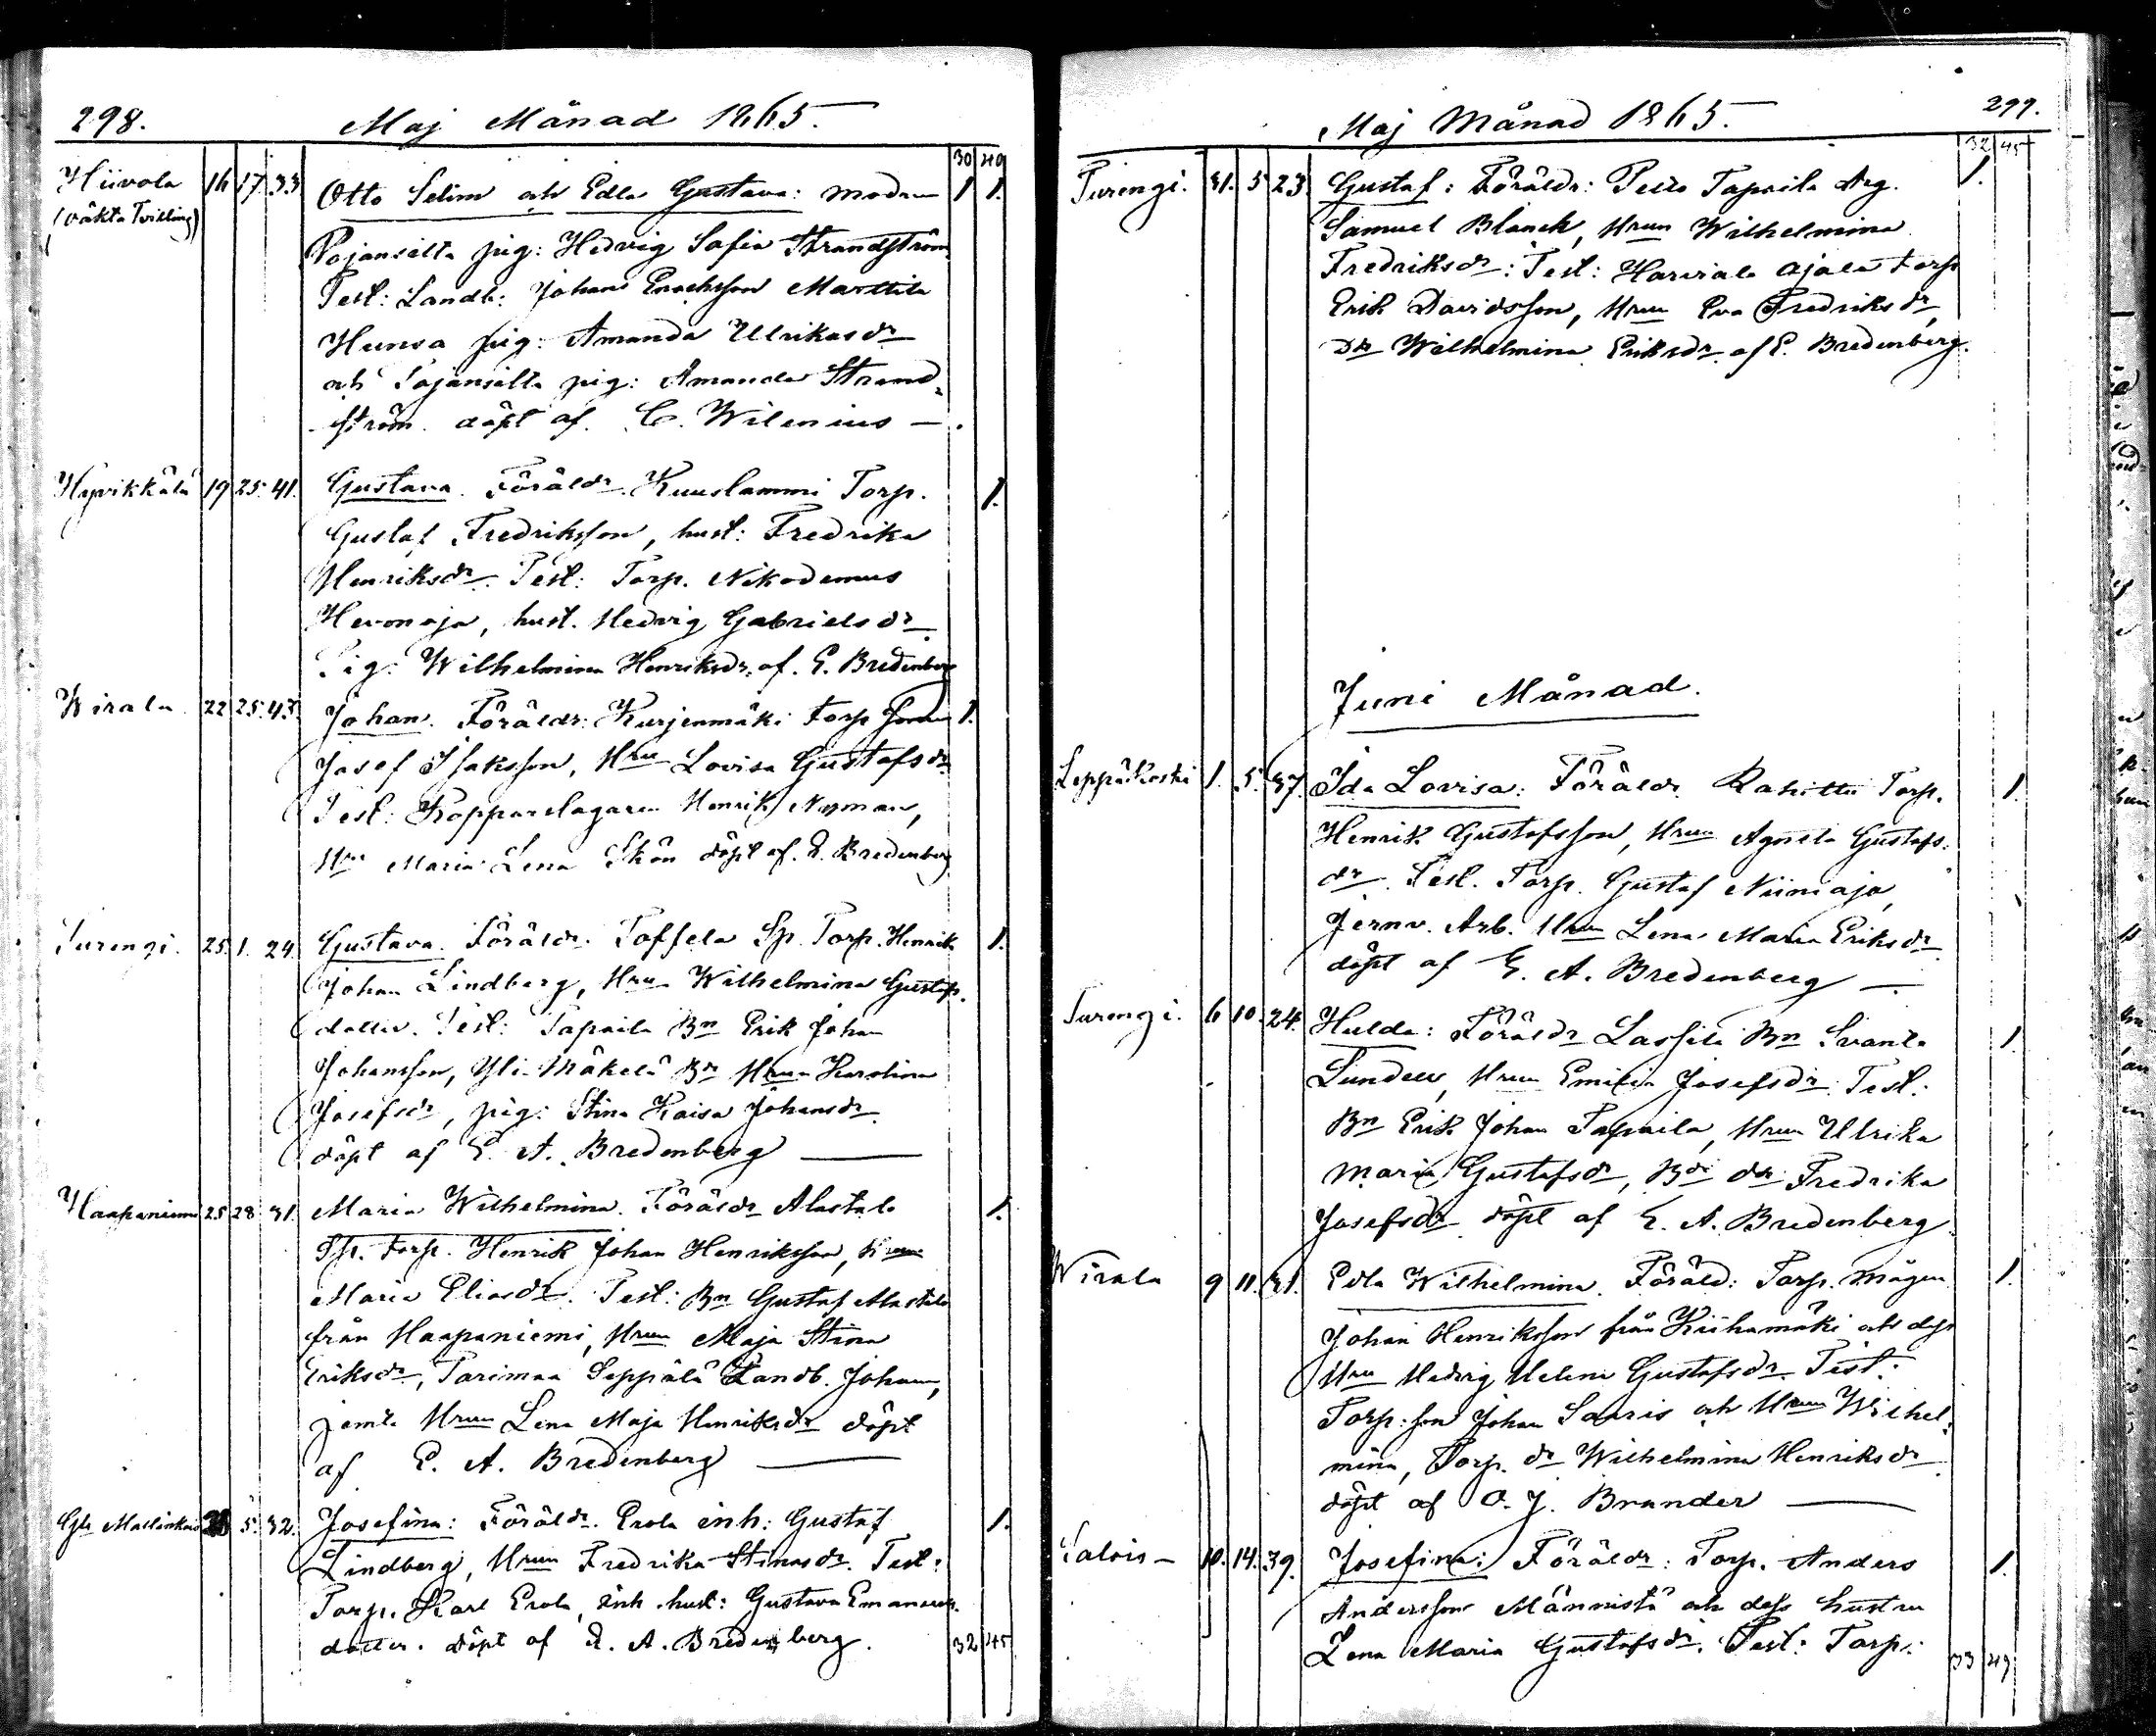 298. Maj Månad 1865.
30 40
Hiivola 16 17. 33 Otto Selim och Edla Gustava: modren 1 1.
(oäkta Tvilling) Pojansilta pig: Hedvig Sofia Strandström
Test: Landb: Johan Enochsson Marttila
Hunsa pig: Amanda Ulrikasdr
och Pojansilta pig: Amanda Strand-
ström. döpt af. C. Wilenius —.
Hyvikkälä 19 25. 41. Gustava. Föräldr. Kuuslammi Torp. 1.
Gustaf Fredriksson, hust: Fredrika
Henriksdr. Test: Torp. Nikodemus
Hevonoja, hust. Hedvig Gabrielsdr
Pig: Wilhelmina Henriksdr. af. E. Bredenberg
Wirala 22 25. 43. Johan. Föräldr: Kurjenmäki torp 1.
Josef Isaksson, Hru Lovisa Gustafsdr
Test: Kopparslagaren Henrik Nyman,
Hru Maria Lena Skön döpt af. E. Bredenberg
Turengi. 25. 1. 24. Gustava. Föräldr. Toffela Sp. Torp. Henrik 1.
Johan Lindberg, Hrun Wilhelmina Gustafs.
dotter. Test: Tapaila Bn Erik Johan
Johansson, Yli-Mäkelä Bn Hrun Karolina
Josefsdr, pig: Stina Kaisa Johansdr.
döpt af E. A. Bredenberg —
Haapaniemi 25 28 31. Maria Wilhelmina. Föräldr Alastalo 1.
Sp. torp. Henrik Johan Henriksson, Hrun
Maria Eliasdr. Test: Bn Gustaf Alastalo
från Haapaniemi, Hrun Maja Stina
Eriksdr, Tarimaa Seppälä Landb. Johan,
jemte Hrun Lena Maja Henriksdr döpt
af E. A. Bredenberg —
Gla Mallinkais 28 5. 32. Josefina: Föräldr. Erola inh: Gustaf 1.
Lindberg, Hrun Fredrika Stinasdr. Test:
Torp. Karl Erola, inh. hust: Gustava Emanuels.
dotter. döpt af E. A. Bredenberg. 32 45
Maj Månad 1865. 299.
32 45
Turengi. 31. 5 23 Gustaf: Föräldr: Pello Tapaila Arg. 1.
Samuel Blanck, Hrun Wilhelmina
Fredriksdr: Test: Harviala Ajala torp
Erik Davidsson, Hrun Eva Fredriksdr,
Dr Wilhelmina Eriksdr. af E. Bredenberg.
Juni Månad.
Leppäkoski 1. 5. 37. Ida Lovisa: Föräldr. Rahittu Torp. 1.
Henrik Gustafsson, Hrun Agneta Gustafs-
dr. Test. Torp. Gustaf Niiniaja,
Jernv. Arb. Hrun Lena Maria Eriksdr
döpt af E. A. Bredenberg —
Turengi. 6 10. 24. Hulda: Föräldr Lassila Bn Svante 1.
Lundell, Hrun Emilia Josefsdr: Test:
Bn Erik Johan Tapaila, Hrun Ulrika
Maria Gustafsdr, Bde dr Fredrika
Josefsdr döpt af E. A. Bredenberg.
Wirala 9 11. 31. Edla Wilhelmina. Föräld: Torp. mågen 1.
Johan Henriksson från Kiihamäki och dess
Hru Hedvig Helena Gustafsdr. Test:
Torp: son Johan Saaris och Hrun Wilhel-
mina, Torp. dr Wilhelmina Henriksdr
döpt af O. J. Brander —
Salois — 10. 14. 39. Josefina: Föräldr: Torp. Anders 1.
Andersson Männistä och dess hustru
Lena Maria Gustafsdr. Test: Torp.
33 49